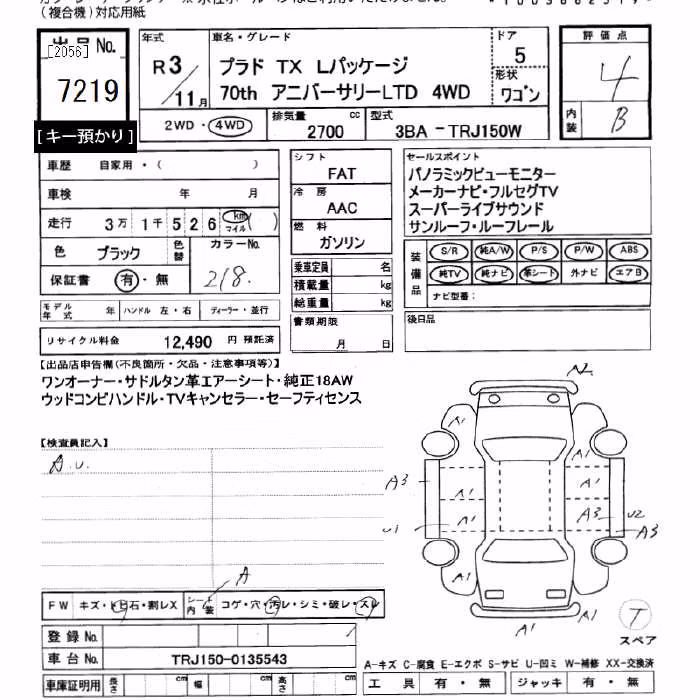 (複合機)対応用紙
出品 No.
[2056]
7219
[キー預かり]
年式
R3/11月
車名・グレード
プラド TX Lパッケージ
70th アニバーサリーLTD 4WD
ドア
5
形状
ワゴン
評価点
4
内装
B
2WD・4WD
排気量
2700 cc
型式
3BA-TRJ150W
車歴 自家用・( )
車検 年 月
走行 3万1千526 km マイル ( )
色 ブラック 色替 カラーNo.
218
保証書 有・無
モデル年式 年 ハンドル 左・右 ディーラー・並行
リサイクル料金 12,490 円 預託済
シフト
FAT
冷房
AAC
燃料
ガソリン
乗車定員 名
積載量 kg
総重量 kg
書類期限
月 日
セールスポイント
パノラミックビューモニター
メーカーナビ・フルセグTV
スーパーライブサウンド
サンルーフ・ルーフレール
装備品
S/R 純A/W P/S P/W ABS
純TV 純ナビ 革シート 外ナビ エアB
ナビ型番:
後日品
【出品店申告欄(不良箇所・欠品・注意事項等)】
ワンオーナー・サドルタン革エアーシート・純正18AW
ウッドコンビハンドル・TVキャンセラー・セーフティセンス
【検査員記入】
A.U.
A2
A1 A1
A3 A1 A1
U1 A1 A1 A3 U2
A3
A1 A1
A1 A1
T
スペア
A
FW キズ・トビ石・割レX シート内装 コゲ・穴・汚レ・シミ・破レ・スレ
登録 No.
車台 No. TRJ150-0135543
車庫証明用 長さ cm 幅 cm 高さ cm
A-キズ C-腐食 E-エクボ S-サビ U-凹ミ W-補修 XX-交換済
工具 有・無 ジャッキ 有・無